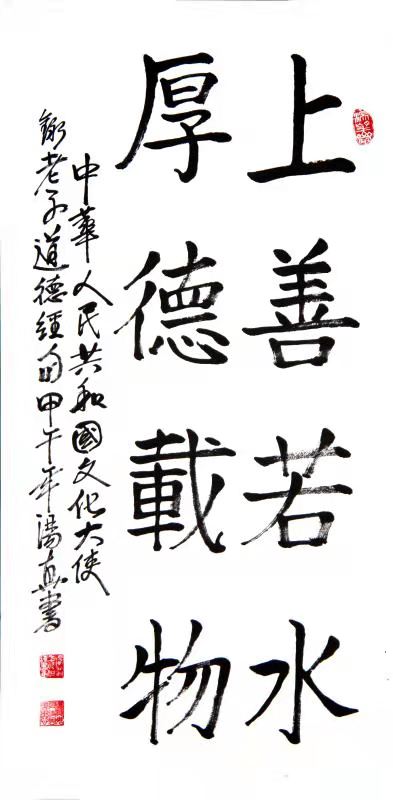 上善若水
厚德載物
中華人民共和國文化大使
錄老子道德經句甲午年湯真書